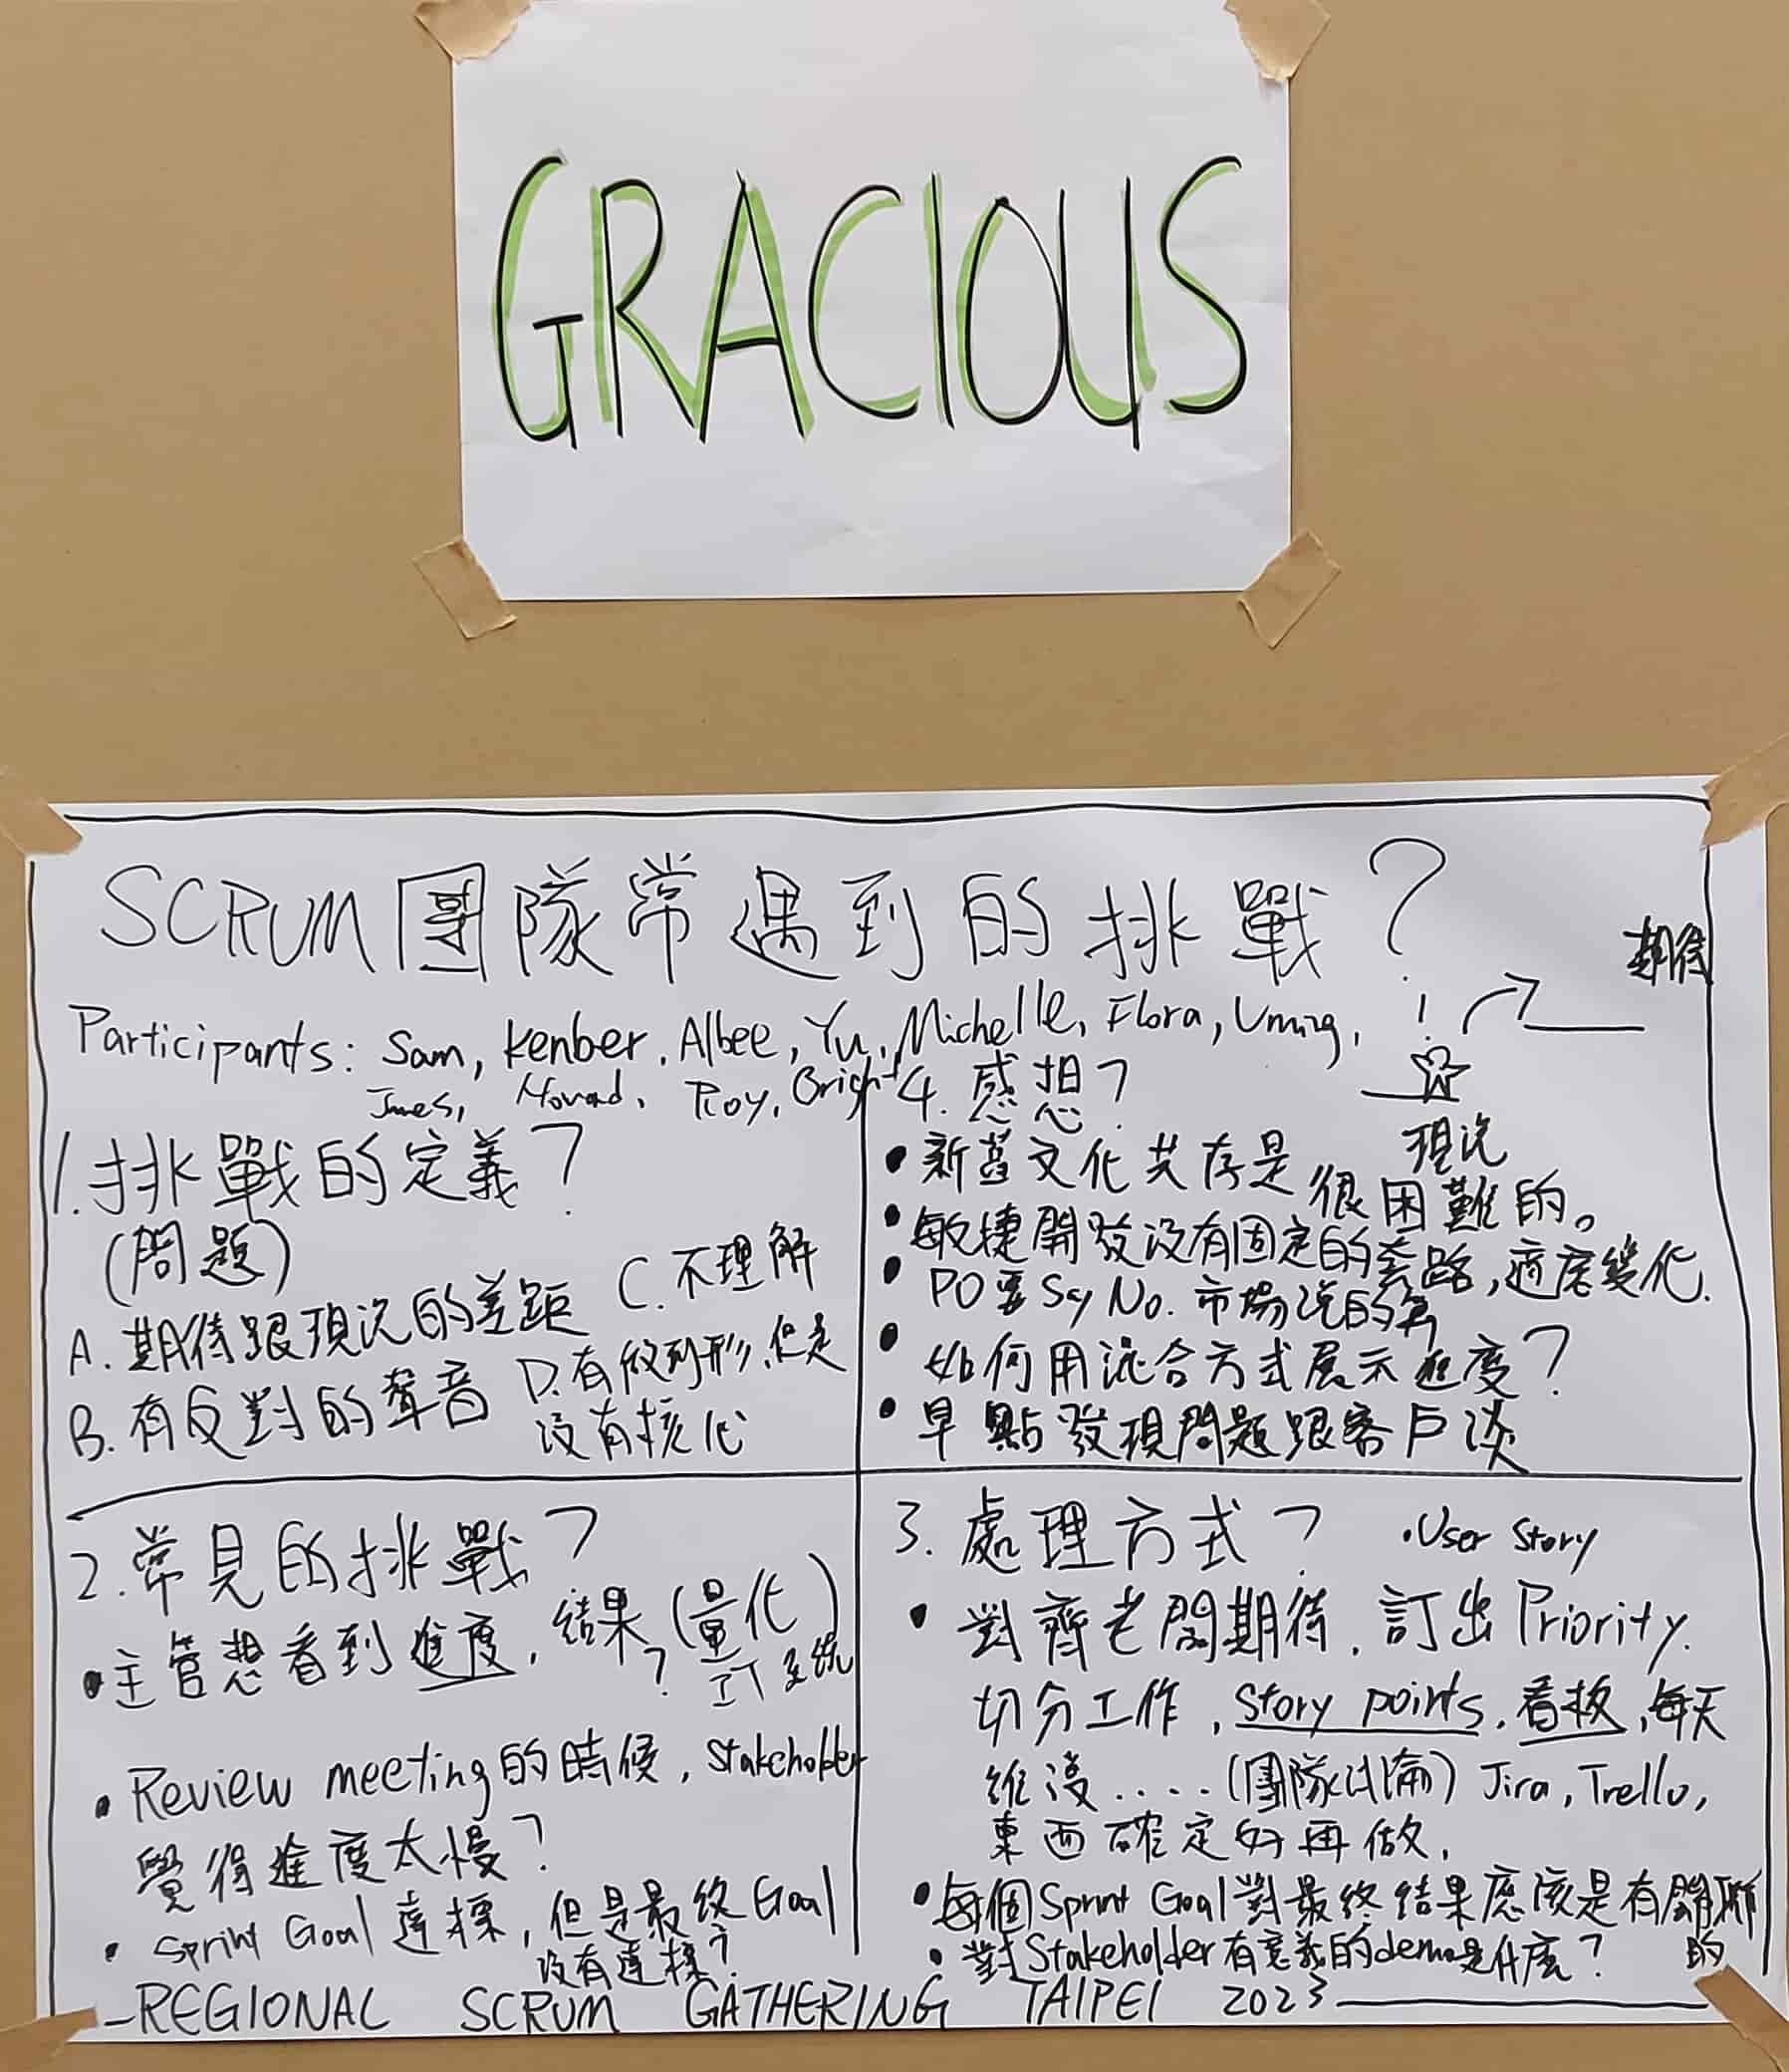 GRACIOUS
SCRUM團隊常遇到的挑戰?
期待
現況
Participants: Sam, Kenber, Albee, Yu, Michelle, Flora,
James, Roy, Bright
1.挑戰的定義?
(問題)
A.期待跟現況的差距
B.有反對的聲音
C.不理解
D.有做到形,但是
沒有核心
4.感想?
•新舊文化共存是很困難的。
•敏捷開發沒有固定的套路,適應變化.
•PO要Say No.市場說的算
•如何用混合方式展示進度?
•早點發現問題跟客戶談
2.常見的挑戰?
•主管想看到進度,結果(量化)
? IT系統
•Review meeting的時候,Stakeholder
覺得進度太慢?
•Sprint Goal達標,但是最終Goal
沒有達標?
3.處理方式?
•User Story
•對齊老闆期待,訂出Priority.
切分工作,Story points,看板,每天
維護....(團隊討論)Jira,Trello,
東西確定好再做.
•每個Sprint Goal對最終結果應該是有關聯
的
•對Stakeholder有意義的demo是什麼?
-REGIONAL SCRUM GATHERING TAIPEI 2023